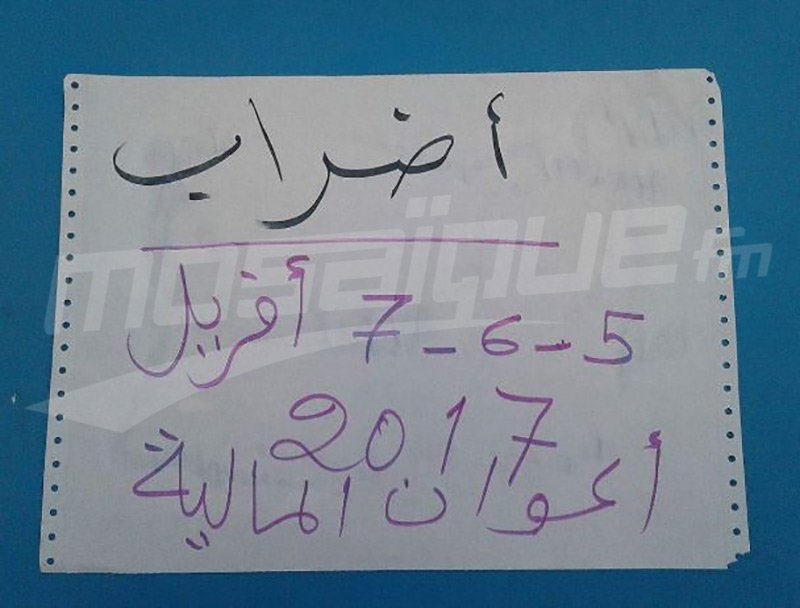 أضراب
5-6-7 أفريل
2017
أعوان المالية
mosaïque fm